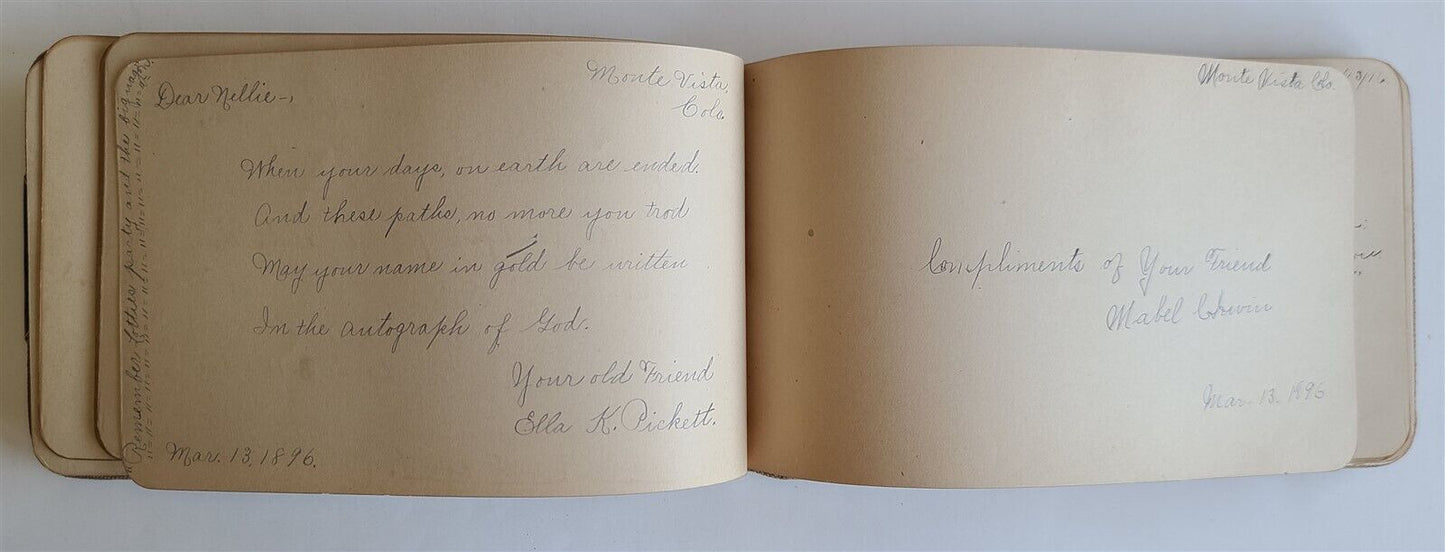 Dear Nellie-,
Monte Vista,
Colo.
When your days, on earth are ended.
And these paths, no more you trod
May your name in gold be written
In the autograph of God.
Your old Friend
Ella K. Pickett.
Mar. 13, 1896.
Remember Lotties party and the big
Monte Vista Colo.
Compliments of Your Friend
Mabel
Mar. 13. 1896